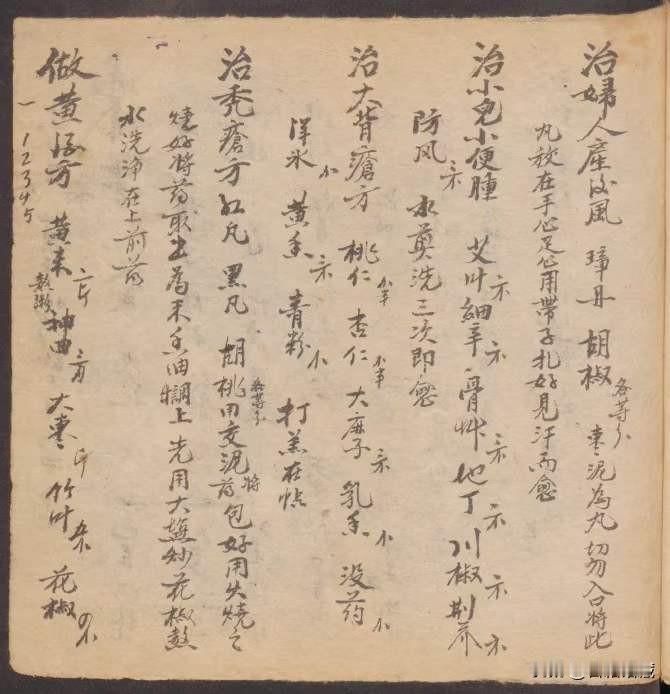 治婦人産后風 璋丹 胡椒 各等分 枣泥為丸 切勿入口 将此
丸放在手心足心用帶子扎好見汗而愈
治小兒小便腫 艾叶 細辛 骨草 地丁 川椒 荆芥
防风 水煎洗三次即愈
治大背瘡方 桃仁 杏仁 大麻子 乳香 没药
洋氷 黄香 青粉 打羔在帖
治秃瘡方 红凡 黑凡 胡桃 各等分 用交泥将药包好用火燒之
燒好将药取出為末香油調上 先用大塩炒花椒熬
水洗净在上前药
做黄酒方 黄米 神曲 大枣 竹叶 花椒
一12345